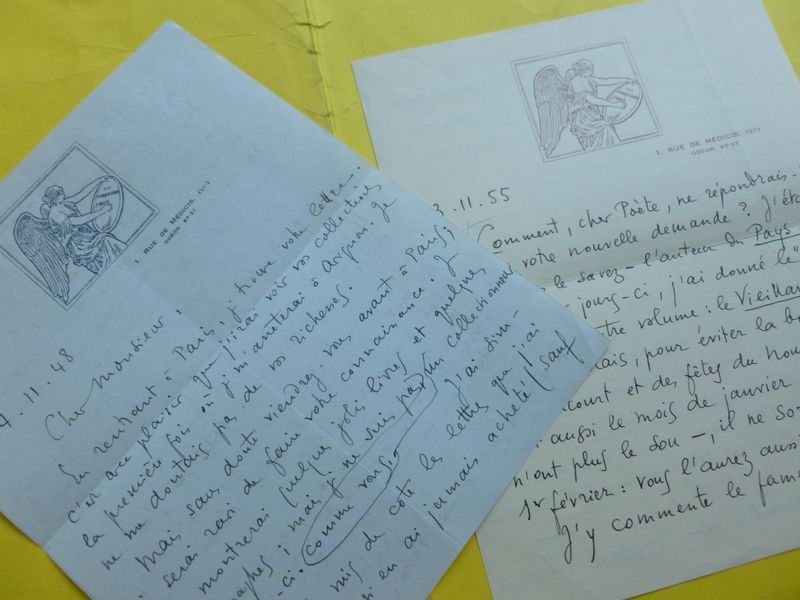 1. RUE DE MÉDICIS. (VIᵉ)
ODÉON 87-57
7.11.48
Cher Monsieur,
En rentrant à Paris, je trouve votre lettre.
c'est avec plaisir que j'irai voir vos collections
la première fois où je m'arrêterai à Avignon. Je
ne me doutais pas de vos richesses.
Mais sans doute viendrez-vous avant à Paris;
serai ravi de faire votre connaissance. Je
montrerai quelques jolis livres et quelques
aphes; mais je ne suis pas un collectionneur
-ci. comme vous. J'ai sim-
mis de côté les lettres que j'ai
en ai jamais acheté (sauf
1. RUE DE MÉDICIS. (VIᵉ)
ODÉON 87-57
3.11.55
Comment, cher Poète, ne répondrais-
votre nouvelle demande? J'ét
le savez - l'auteur du Pays
jours-ci, j'ai donné le "
tre volume: le Vieillar
ais, pour éviter la b
court et des fêtes du nou
aussi le mois de janvier
n'ont plus le sou -, il ne so
1er février: vous l'aurez auss
J'y commente le fam